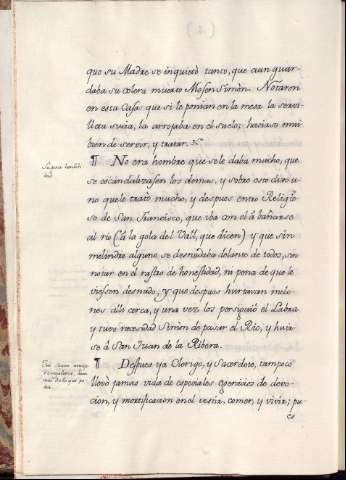 que su Madre se inquietó tanto, que aun guar-
daba su colera muerto Mosen Simòn. Notaron
en esta Casa que si le ponian en la mesa la servi-
lleta sucia, la arrojaba en el suelo; haciase mui
bien de servir, y tratar.
¶ No era hombre que se le daba mucho, que
se escandalizasen los demas, y sobre esto dixo u-
no que le trató mucho, y despues entrò Religio-
so de San Francisco, que iba con el à bañarse
al rio (à la gola del Vall, que dicen) y que sin
melindre alguno se desnudaba delante de todos, sin
notar en el rastro de honestidad, ni pena de que le
viesen desnudo; y que despues hurtavan melo-
nes alli cerca, y una vez los persiguiò el Labra-
y tuvo necesidad Simòn de pasar el Rio, y huir-
se à San Juan de la Ribera.
¶ Despues ya Clerigo, y Sacerdote, tampoco
llevò jamas vida de especiales exercicios de devo-
cion, y mortificacion en el vestir, comer, y vivir; pu-
es